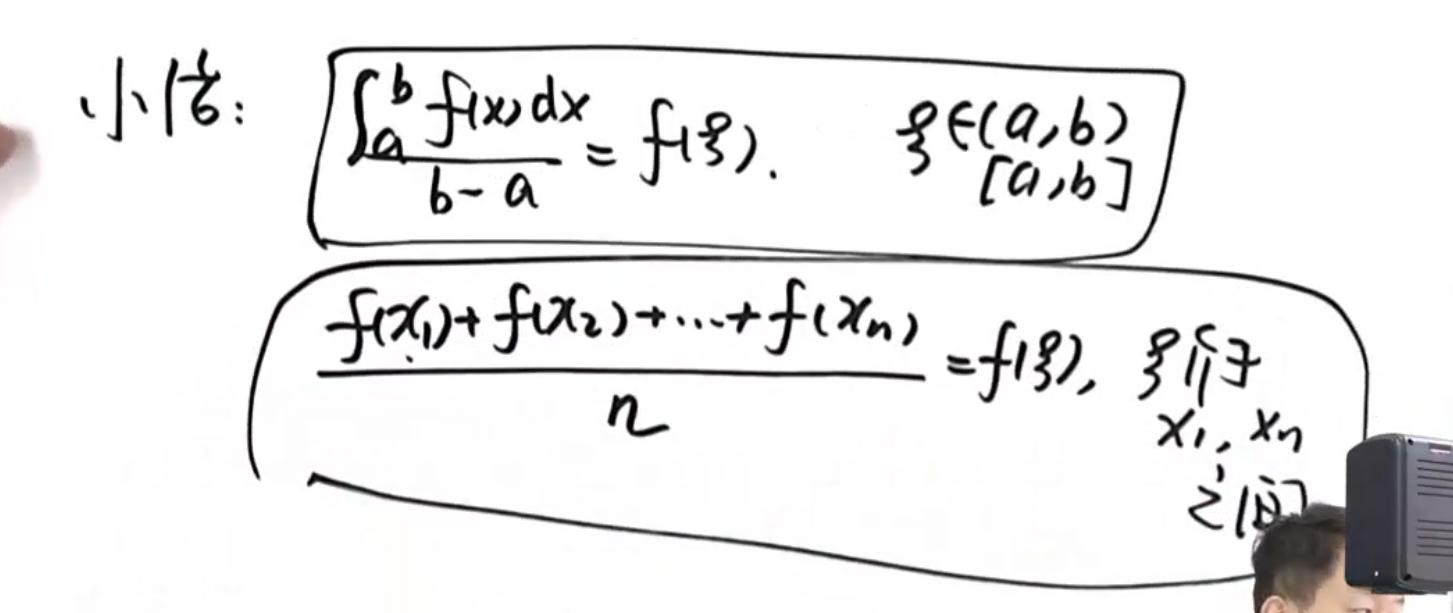 小结:
∫_a^b f(x)dx / (b-a) = f(ξ). ξ∈(a,b)
[a,b]
(f(x₁)+f(x₂)+…+f(xₙ)) / n = f(ξ), ξ介于
x₁, xₙ
之间